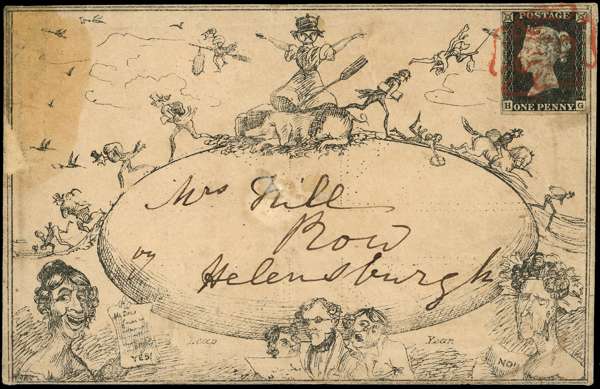 POSTAGE
H ONE PENNY G
Mrs Hill
Row
by Helensburgh
YES!
Leap Year
NO!